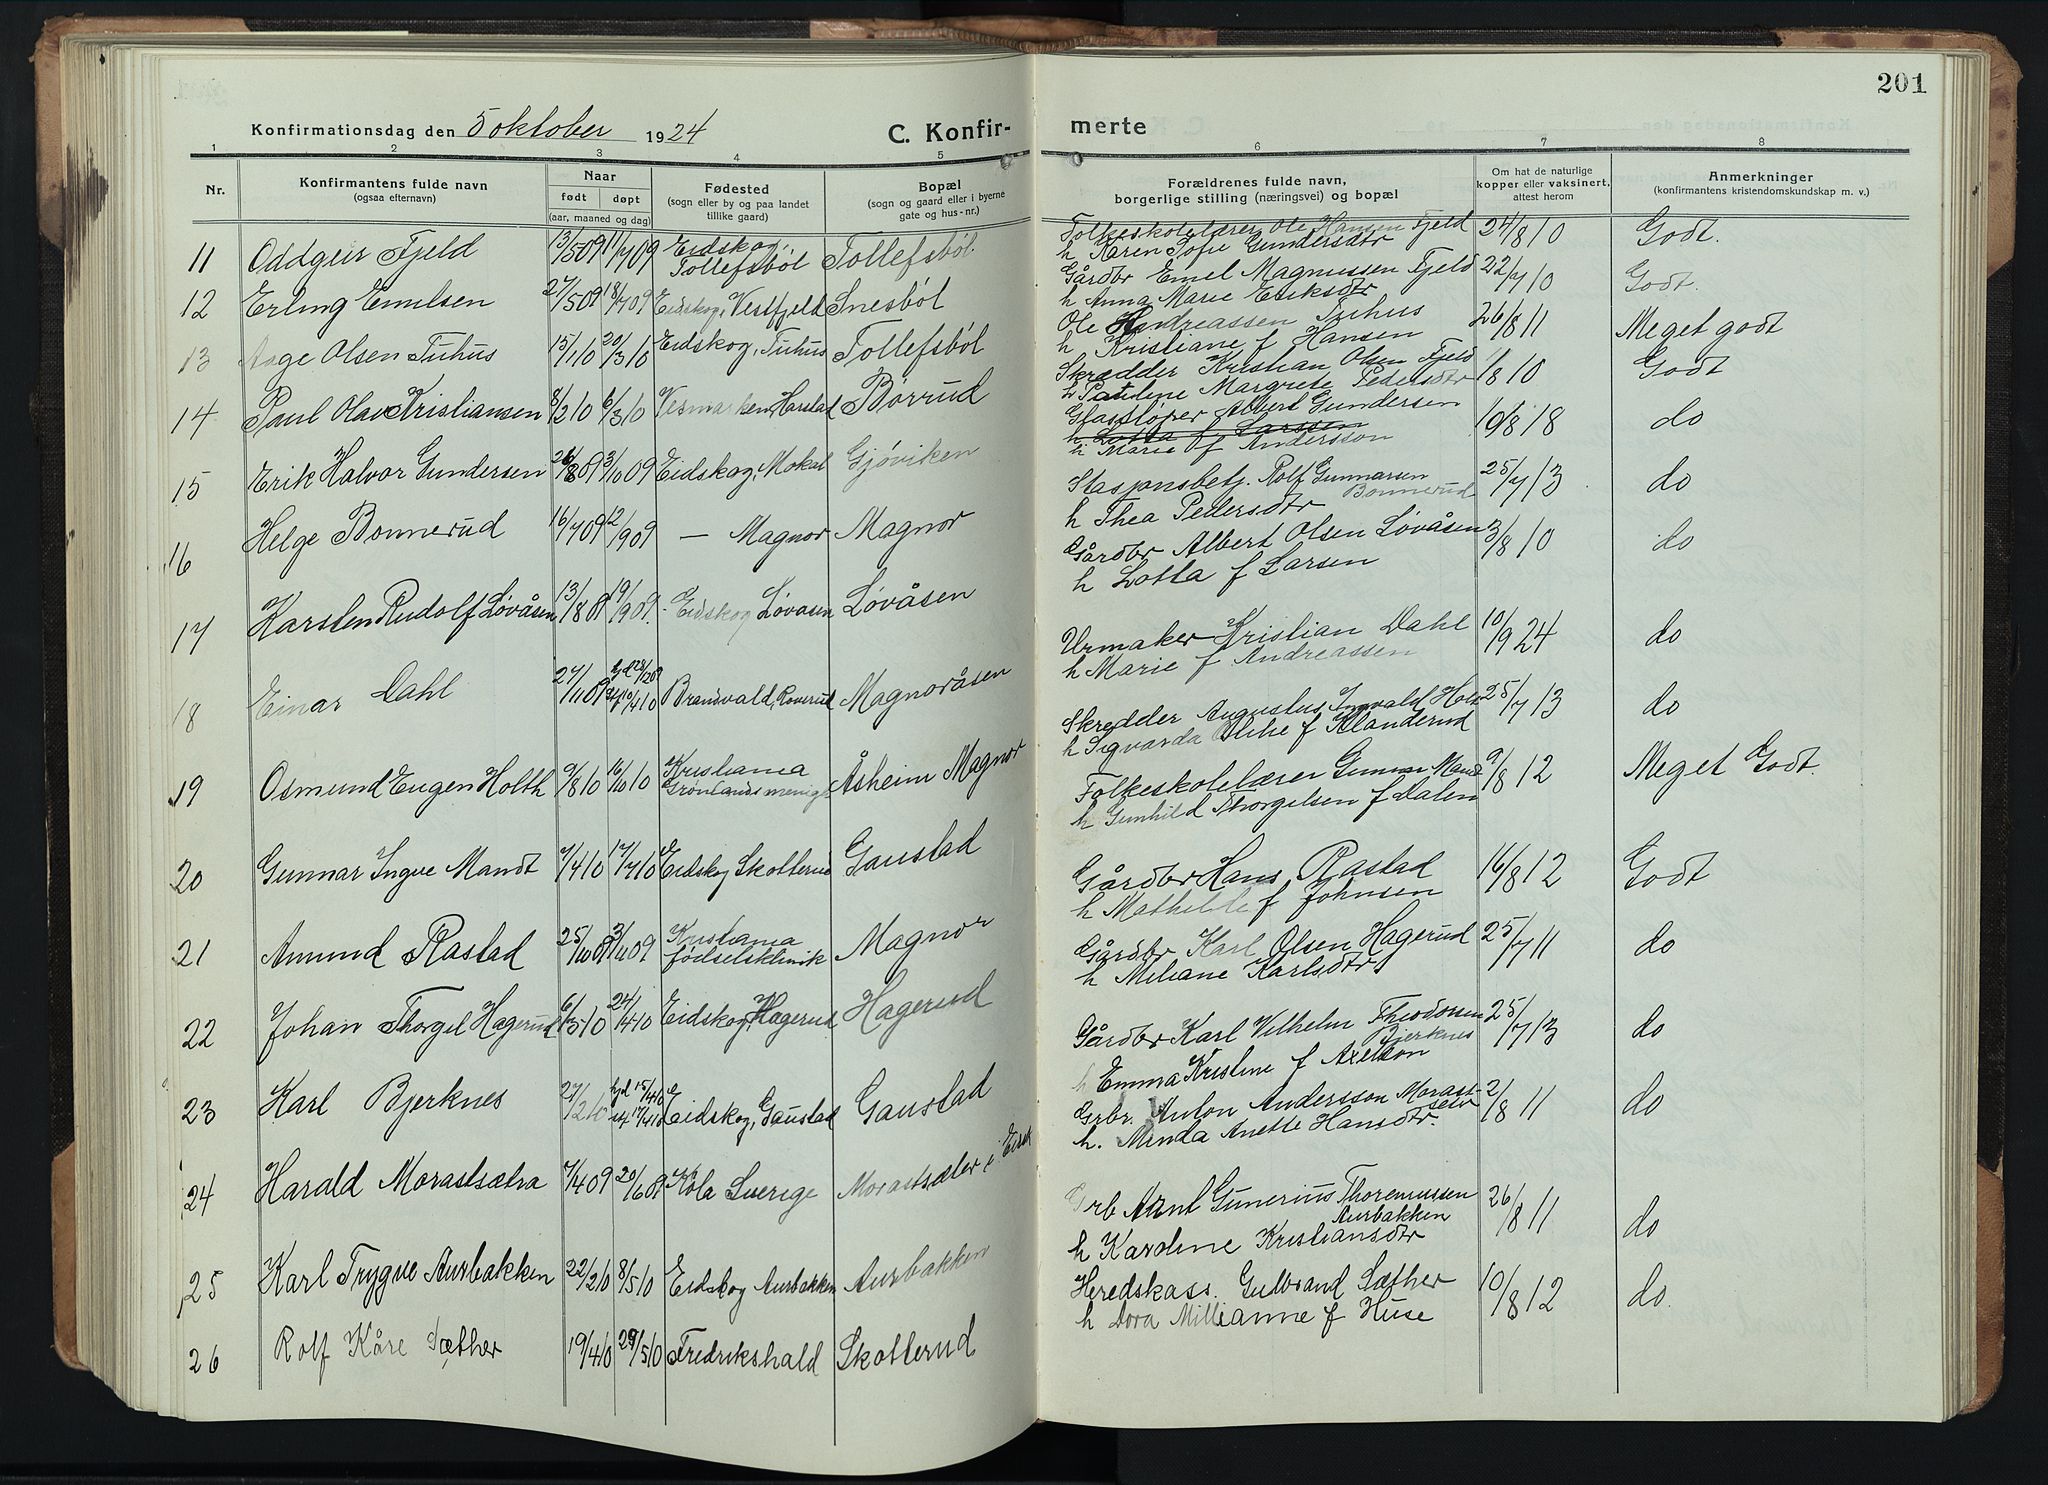 201
Konfirmationsdag den 5 oktober 1924
C. Konfir-
merte
1 2 3 4 5 6 7 8
Nr.
Konfirmantens fulde navn
(ogsaa efternavn)
Naar
født døpt
(aar, maaned og dag)
Fødested
(sogn eller by og paa landet
tillike gaard)
Bopæl
(sogn og gaard eller i byerne
gate og hus-nr.)
Forældrenes fulde navn,
borgerlige stilling (næringsvei) og bopæl
Om hat de naturlige
kopper eller vaksinert,
attest herom
Anmerkninger
(konfirmantens kristendomskundskap m. v.)
11 Oddgeir Fjeld 13/5 09 11/7 09 Eidskog, Tollefsböl Tollefsböl
Folkeskolelærer Ole Hansen Fjeld 24/8 10 Godt.
h Karen Sofie Gundersdtr
12 Erling Emilsen 27/5 09 18/7 09 Eidskog, Vestfjeld Snesböl
Gårdbr Emel Magnussen Fjeld 22/7 10 Godt.
h Anna Marie Eriksdtr
13 Aage Olsen Tuhus 15/1 10 20/3 10 Eidskog, Tuhus Tollefsböl
Ole Andreassen Tuhus 26/8 11 Meget godt
h Kristiane f Hansen
14 Paul Olav Kristiansen 8/2 10 6/3 10 Vesmarken, Harstad Börrud
Skrædder Kristian Olsen Fjeld 1/8 10 Godt
h Pauline Margrete Pedersdtr
15 Erik Halvor Gundersen 26/8 09 3/10 09 Eidskog, Mokal Gjöviken
Glassliper Albert Gundersen 10/8 18 do
h Lotta f Larssen
h Marie f Andersson
16 Helge Bonnerud 16/7 09 12/9 09 — Magnor Magnor
Stasjonsbetj. Rolf Gunnarsen Bonnerud 25/7 13 do
h Thea Pedersdtr
17 Karsten Rudolf Løvåsen 13/8 09 19/9 09. Eidskog Løvasen Løvåsen
Gårdbr Albert Olsen Løvåsen 3/8 10 do
h Lotta f Larsen
18 Einar Dahl 27/11 09 Brandvald, Roverud Magnoråsen
Urmaker Kristian Dahl 10/9 24 do
h Marie f Andreassen
19 Osmund Eugen Holth 9/8 10 16/10 10 Kristiania Grønlands menigh Åsheim Magnor
Skredder Augustus Ingvald Holt 25/7 13 do
h Sigvarda f Klanderud
20 Gunnar Ingve Mandt 7/4 10 17/7 10 Eidskog Skotterud Gaustad
Folkeskolelærer Gunnar Mandt 9/8 12 Meget Godt.
h Gunhild Thorgelsen f Dalen
21 Amund Rastad 25/10 09 Kristiania fødselsklinik Magnor
Gårdbr Hans Rastad 16/8 12 Godt
h Mathilde f Johnsen
22 Johan Thorgel Hagerud 6/3 10 24/4 10 Eidskog, Hagerud Hagerud
Gårdbr Karl Olsen Hagerud 25/7 11 do
h Miliane Karlsdtr
23 Karl Bjerknes 27/2 10 hjd 15/4 10 Eidskog, Gaustad Gaustad
Gårdbr Karl Vilhelm Theodorsen Bjerknes 25/7 13 do
h Emma Kristine f Axelson
24 Harald Morastsætra 7/4 09 20/6 09 Köla Sverige Morastsæter i Eidsk
Grbr. Anton Andersson Morastsæter 2/8 11 do
h. Minda Anette Hansdtr.
25 Karl Trygve Aurbakken 22/2 10 8/5 10 Eidskog Aurbakken Aurbakken
Grb Arnt Gunerius Thoremussen Aurbakken 26/8 11 do
h Karoline Kristiansdtr
26 Rolf Kåre Sæther 19/4 10 29/5 10 Fredrikshald Skotterud
Heredskass. Gulbrand Sæther 10/8 12 do.
h Dora Millianne f Huse